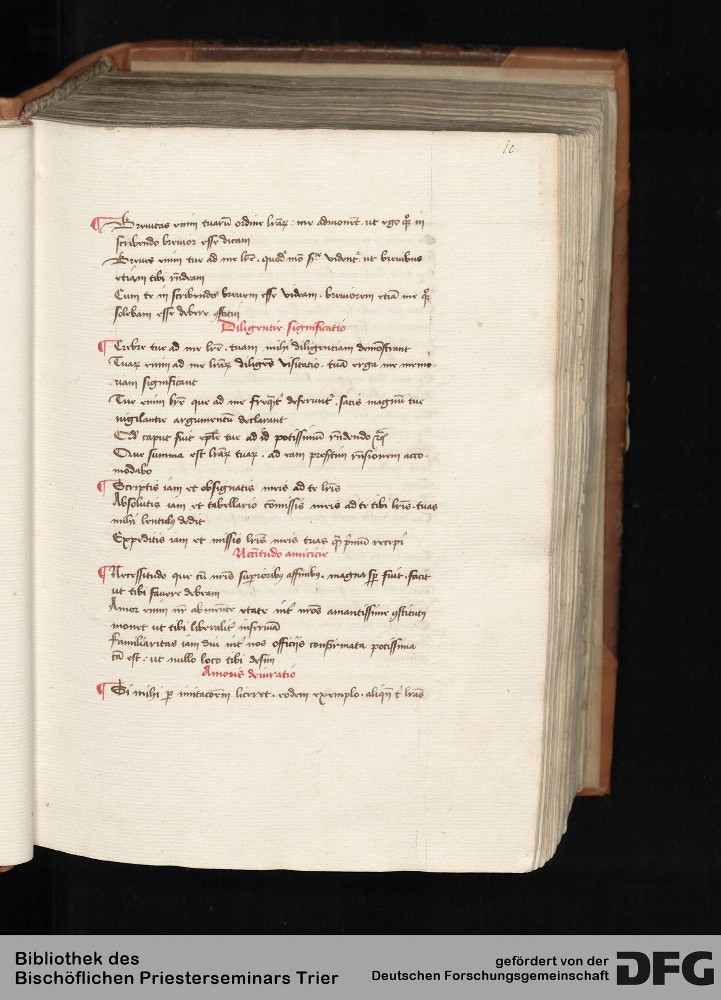 10
Brevitas enim tuarū ordine lraꝝ : me admonet . ut ego qꝫ in
scribendo brevior esse dicam
Breves enim tue ad me lrē . quod mō vident᷑ ut brevibus
etiam tibi rñdeam
Cum te in scribendo brevem esse videam . breviorem etiā me qꝫ
solebam esse debere
Diligentie significatio
Crebre tue ad me lrē . tuam mihi diligentiam demōstrant
Tuaꝝ enim ad me lraꝝ diligēs visitatio . tuā erga me memo-
riam significant
Tue enim lrē que ad me freqēt᷑ deferunt᷑ . satis magnū tue
vigilantie argumentū declarant
caput fuit eple tue ad id potissimū rñdendo
Que summa est lraꝝ tuaꝝ . ad eam rñsionem acco-
modabo
Scriptis iam et obsignatis meis ad te lris
Absolutis iam et tabellario cōmissis meis ad te tibi lris . tuas
mihi dedit
Expeditis iam et missis lris meis tuas recepi
Nccitudo amicicie
Necessitudo que cū nris supioribꝫ affinibꝫ . magna sp fuit . facit
ut tibi favere debeam
Amor enim etate int᷑ nos amantissime
monet ut tibi liberalit᷑ inserviā
Familiaritas iam diu int᷑ nos officijs confirmata potissima
cā est . ut nullo loco tibi desim
Amoris
Si mihi p liceret . eodem exemplo . lras
Bibliothek des
Bischöflichen Priesterseminars Trier
gefördert von der
Deutschen Forschungsgemeinschaft
DFG